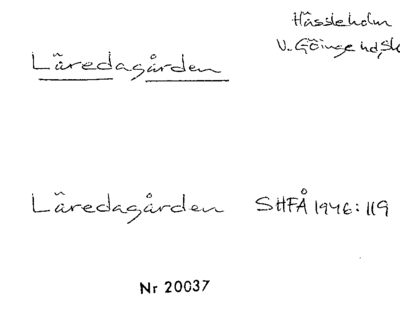 Hässleholm
V. Göinge hd, Sk
Läredagården
Läredagården SHFÅ 1946:119
Nr 20037